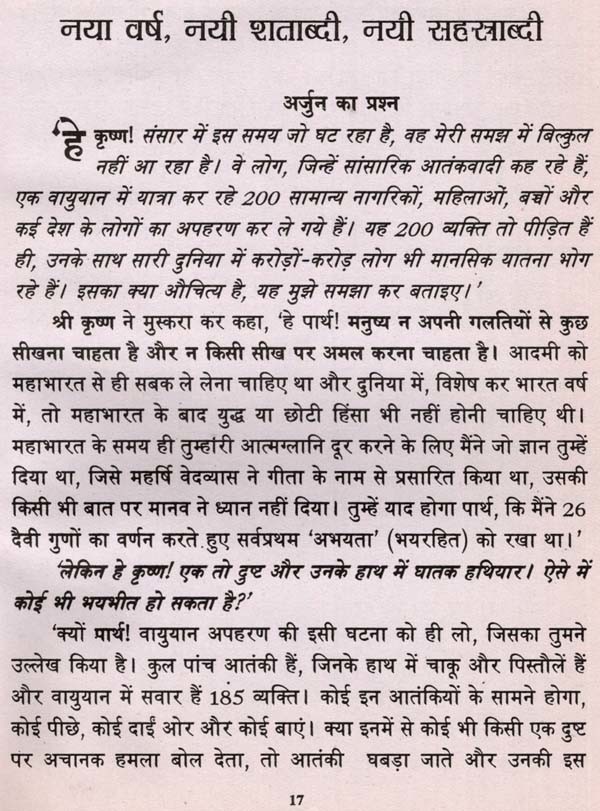 नया वर्ष, नयी शताब्दी, नयी सहस्राब्दी
अर्जुन का प्रश्न
'हे कृष्ण! संसार में इस समय जो घट रहा है, वह मेरी समझ में बिल्कुल
नहीं आ रहा है। वे लोग, जिन्हें सांसारिक आतंकवादी कह रहे हैं,
एक वायुयान में यात्रा कर रहे 200 सामान्य नागरिकों, महिलाओं, बच्चों और
कई देश के लोगों का अपहरण कर ले गये हैं। यह 200 व्यक्ति तो पीड़ित हैं
ही, उनके साथ सारी दुनिया में करोड़ों-करोड़ लोग भी मानसिक यातना भोग
रहे हैं। इसका क्या औचित्य है, यह मुझे समझा कर बताइए।'
श्री कृष्ण ने मुस्करा कर कहा, 'हे पार्थ! मनुष्य न अपनी गलतियों से कुछ
सीखना चाहता है और न किसी सीख पर अमल करना चाहता है। आदमी को
महाभारत से ही सबक ले लेना चाहिए था और दुनिया में, विशेष कर भारत वर्ष
में, तो महाभारत के बाद युद्ध या छोटी हिंसा भी नहीं होनी चाहिए थी।
महाभारत के समय ही तुम्हांरी आत्मग्लानि दूर करने के लिए मैंने जो ज्ञान तुम्हें
दिया था, जिसे महर्षि वेदव्यास ने गीता के नाम से प्रसारित किया था, उसकी
किसी भी बात पर मानव ने ध्यान नहीं दिया। तुम्हें याद होगा पार्थ, कि मैंने 26
दैवी गुणों का वर्णन करते हुए सर्वप्रथम 'अभयता' (भयरहित) को रखा था।'
'लेकिन हे कृष्ण! एक तो दुष्ट और उनके हाथ में घातक हथियार। ऐसे में
कोई भी भयभीत हो सकता है?'
'क्यों पार्थ! वायुयान अपहरण की इसी घटना को ही लो, जिसका तुमने
उल्लेख किया है। कुल पांच आतंकी हैं, जिनके हाथ में चाकू और पिस्तौलें हैं
और वायुयान में सवार हैं 185 व्यक्ति। कोई इन आतंकियों के सामने होगा,
कोई पीछे, कोई दाईं ओर और कोई बाएं। क्या इनमें से कोई भी किसी एक दुष्ट
पर अचानक हमला बोल देता, तो आतंकी घबड़ा जाते और उनकी इस
17